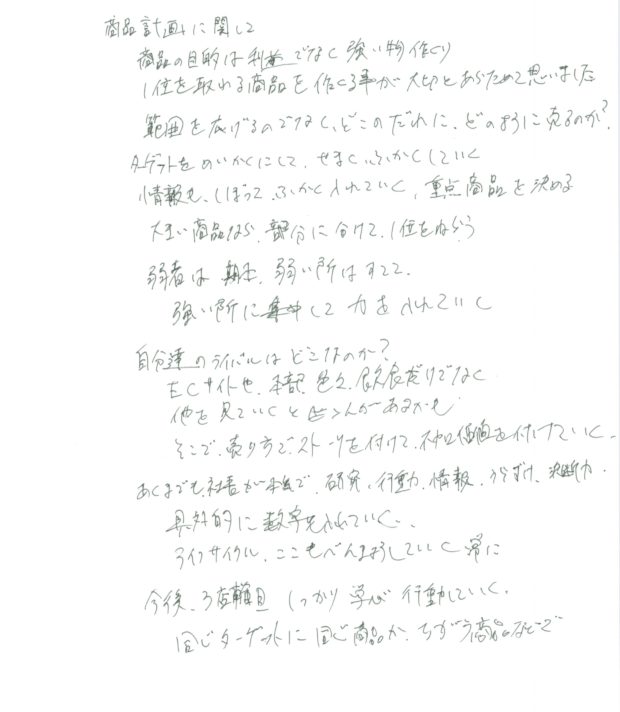 商品計画に関して
商品の目的は利益でなく強い物作り
1位を取れる商品を作くる事が大切とあらためて思いました
範囲を広げるのでなく、どこのだれに、どのように売るのか?
ターゲットをめいかくにして、せまく、ふかくしていく
情報も、しぼって、ふかく入れていく、重点商品を決める
大きい商品なら、部分に分けて、1位をねらう
弱者は 弱い所はすてて、
強い所に集中して力を入れていく
自分達のライバルはどこなのか?
ECサイトや、本部、色々、飲食だけでなく
他を見ていくとヒントがあるかも
そこで、売り方で、ストーリーを付けて、価値を付けていく、
あくまでも社長が本気で、研究、行動、情報、うらずけ、決断力、
具体的に数字も入れていく、
ライフサイクル、ここもべんきょうしていく 常に
今後、3店舗目 しっかり学び行動していく、
同じターゲットに同じ商品か、ちがう商品などで